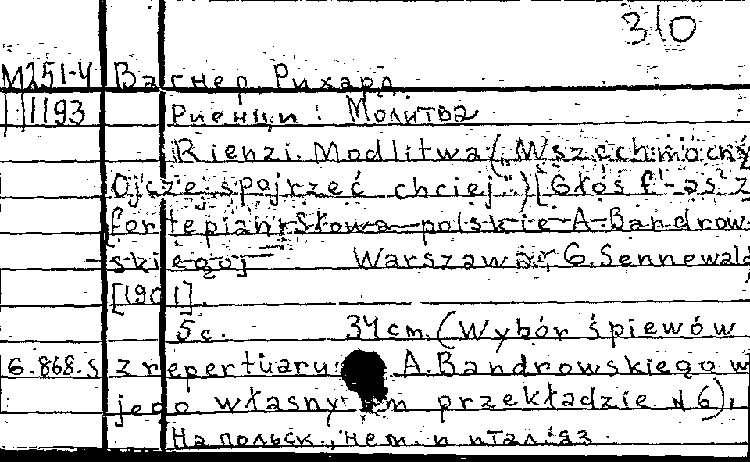 310
М251-4 Вагнер, Рихард.
1193 Риенци: Молитва
Rienzi. Modlitwa („Wszechmocny
Ojcze spojrzeć chciej") [Głos f'-as² z
fortepian. Słowa polskie A. Bandrow-
skiego] Warszawa, G. Sennewald
[1901].
5 с. 34 cm. (Wybór śpiewów
6.868.s z repertuaru A. Bandrowskiego w
jego własnym przekładzie N 6).
На польск., нем. и итал. яз.